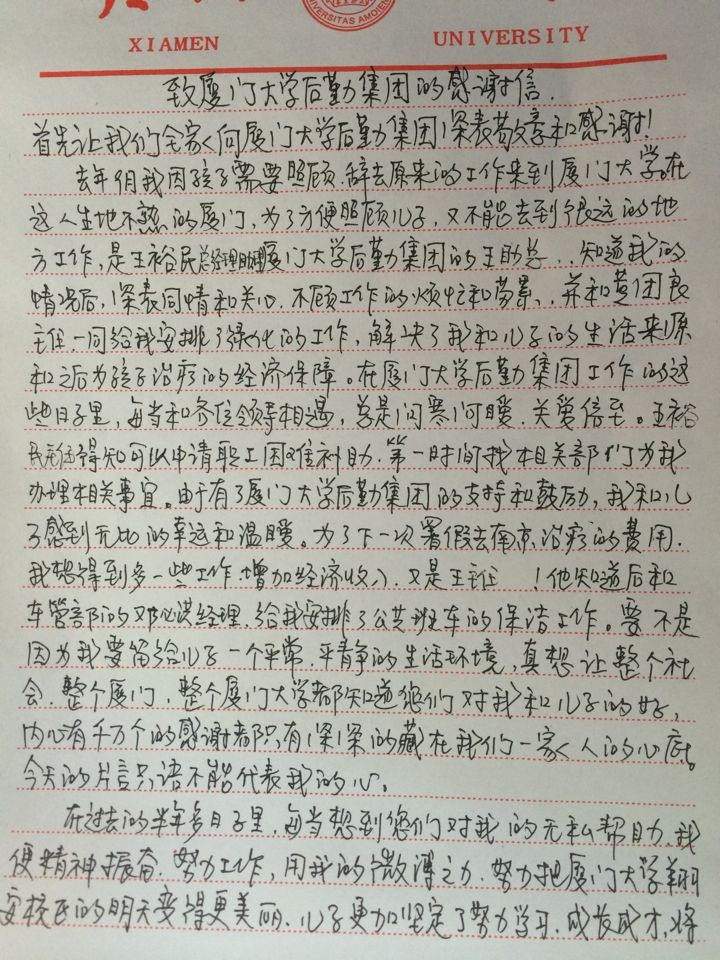 UNIVERSITAS AMOIENSIS
XIAMEN UNIVERSITY
致厦门大学后勤集团的感谢信.
首先让我们全家人向厦门大学后勤集团深表敬意和感谢!
去年9月我因孩子需要照顾,辞去原来的工作来到厦门大学。在
这人生地不熟的厦门,为了方便照顾儿子,又不能去到很远的地
方工作,是王裕民总经理助理厦门大学后勤集团的王助总..知道我的
情况后,深表同情和关心.不顾工作的烦忙和劳累、并和黄团良
主任一同给我安排了绿化的工作,解决了我和儿子的生活来源
和之后为孩子治疗的经济保障。在厦门大学后勤集团工作的这
些日子里,每当和各位领导相遇,总是问寒问暖.关爱倍至。王裕
民主任得知可以申请职工困难补助.第一时间找相关部们为我
办理相关事宜。由于有了厦门大学后勤集团的支持和鼓励,我和儿
子感到无比的幸运和温暖。为了下一次署假去南京治疗的费用.
我想得到多一些工作.增加经济收入.又是王主任 !他知道后和
车管部的邓必洪经理.给我安排了公共班车的保洁工作。要不是
因为我要留给儿子一个平常.平静的生活环境,真想让整个社
会.整个厦门.整个厦门大学都知道您们对我和儿子的好,
内心有千万个的感谢都只有深深的藏在我们一家人的心底。
今天的片言只语不能代表我的心。
在过去的半年多日子里.每当想到您们对我的无私帮助.我
便精神振奋.努力工作,用我的微薄之力.努力把厦门大学翔
安校区的明天变得更美丽.儿子更加坚定了努力学习.成长成才,将